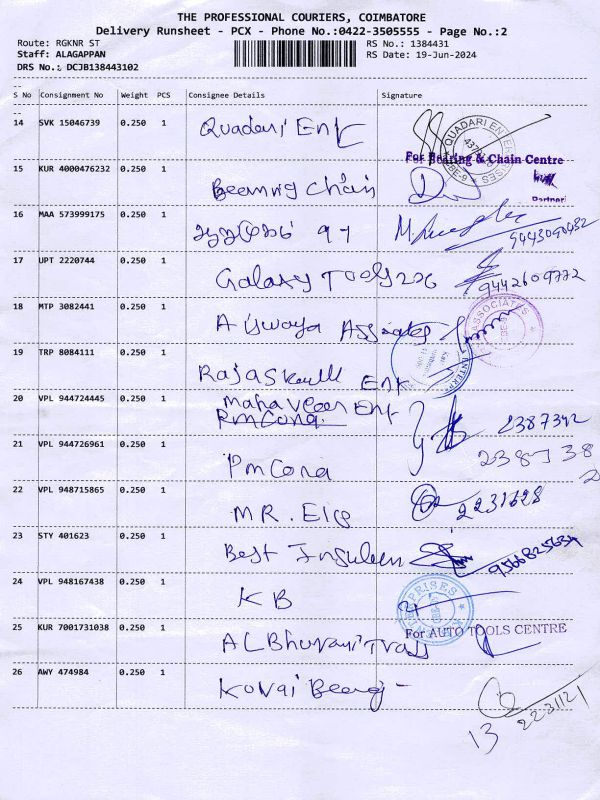 THE PROFESSIONAL COURIERS, COIMBATORE
Delivery Runsheet - PCX - Phone No.:0422-3505555 - Page No.:2
Route: RGKNR ST RS No.: 1384431
Staff: ALAGAPPAN RS Date: 19-Jun-2024
DRS No.: DCJB138443102
--
S No Consignment No Weight PCS Consignee Details Signature
--
14 SVK 15046739 0.250 1 Quadari Ent QUADARI ENTERPRISES
For Bearing & Chain Centre
15 KUR 4000476232 0.250 1 Bearing Chain
Partner
16 MAA 573999175 0.250 1 97 9443090432
17 UPT 2220744 0.250 1 Galaxy Tools 226 9442609772
18 MTP 3082441 0.250 1 Aiswaya Assiates ASSOCIATES
19 TRP 8084111 0.250 1 Ent
20 VPL 944724445 0.250 1 Mahaveer Ent 2387342
RM Cona
21 VPL 944726961 0.250 1 PM Cona 238738
2
22 VPL 948715865 0.250 1 MR. Ele 2231628
23 STY 401623 0.250 1 Best 9566825634
24 VPL 948167438 0.250 1 KB
25 KUR 7001731038 0.250 1 AL Bhuvani For AUTO TOOLS CENTRE
26 AWY 474984 0.250 1 Kovai Bearg -
2231121
13